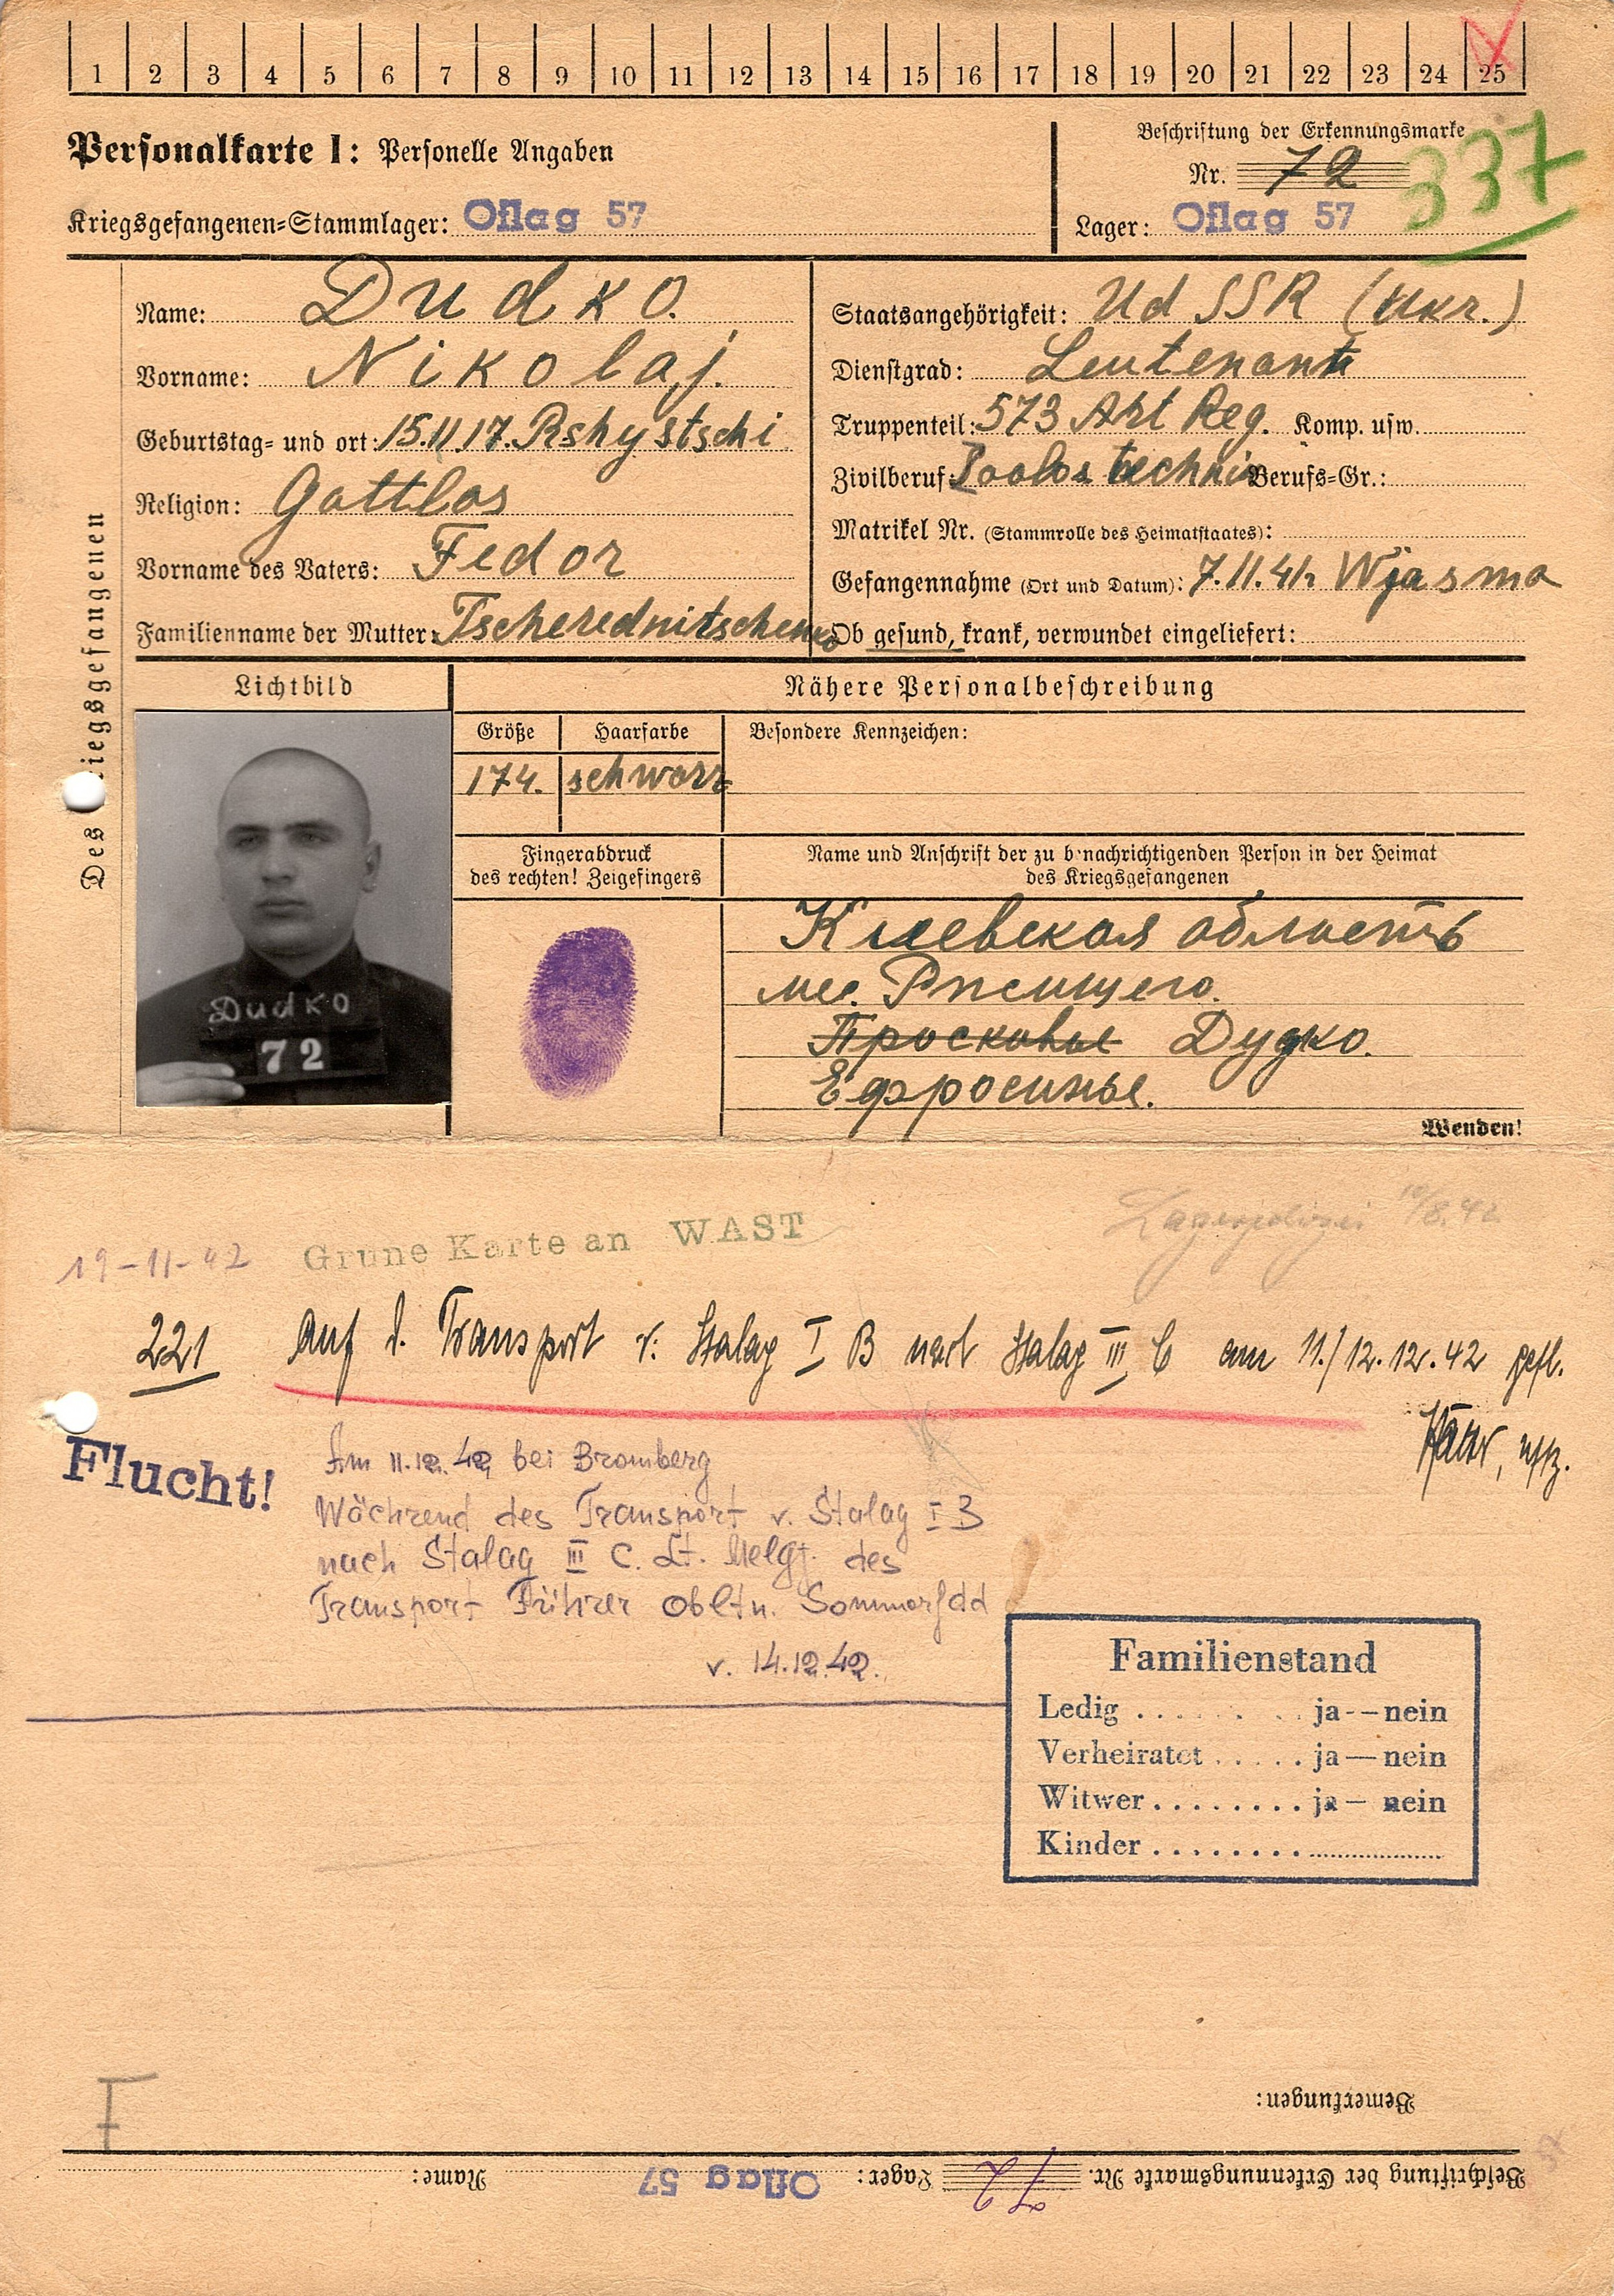 1 2 3 4 5 6 7 8 9 10 11 12 13 14 15 16 17 18 19 20 21 22 23 24 25
Personalkarte I: Personelle Angaben
Kriegsgefangenen-Stammlager: Oflag 57
Beschriftung der Erkennungsmarke
Nr. 72
337
Lager: Oflag 57
Des Kriegsgefangenen
Name: Dudko.
Vorname: Nikolaj.
Geburtstag- und ort: 15.11.17. Rshystschi
Religion: Gottlos
Vorname des Vaters: Fedor
Familienname der Mutter: Tscherednitschenko
Staatsangehörigkeit: UdSSR (Ukr.)
Dienstgrad: Leutenant
Truppenteil: 573 Art Reg. Komp. usw.
Zivilberuf: technik Berufs-Gr.:
Matrikel Nr. (Stammrolle des Heimatstaates):
Gefangennahme (Ort und Datum): 7.11.41 Wjasma
Ob gesund, krank, verwundet eingeliefert:
Lichtbild
Nähere Personalbeschreibung
Größe
Haarfarbe
Besondere Kennzeichen:
174.
schwarz
Dudko
72
Fingerabdruck
des rechten! Zeigefingers
Name und Anschrift der zu benachrichtigenden Person in der Heimat
des Kriegsgefangenen
Киевская область
мес. Ржищего.
Просковье Дудко.
Ефросинье.
Wenden!
Lagerpolizei 10/8.42
19-11-42 Grune Karte an WAST
221 Auf d. Transport v. Stalag I B nach Stalag III C am 11./12.12.42 gefl.
Uffz.
Flucht!
Am 11.12.42 bei Bromberg
Wächrend des Transport v. Stalag I B
nach Stalag III C. Lt. Melg. des
Transport Führer Obltn. Sommerfeld
v. 14.12.42.
Familienstand
Ledig ........ ja -- nein
Verheiratet ..... ja — nein
Witwer ........ ja — nein
Kinder ........
F
Bemerkungen:
Beschriftung der Erkennungsmarke Nr. 72 Lager: Oflag 57 Name: